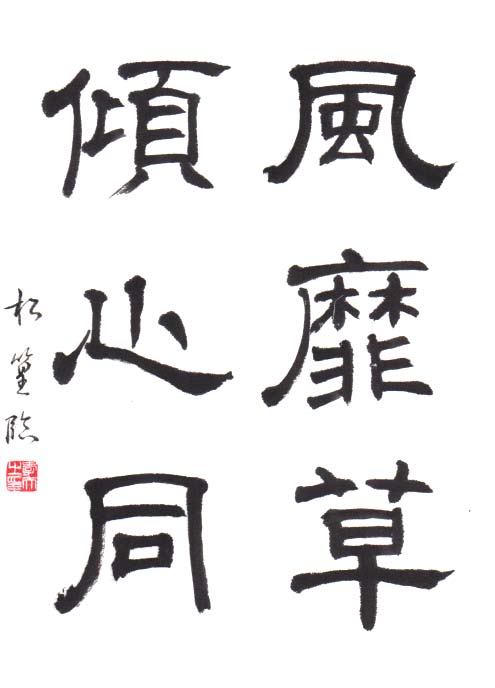 風靡草
傾心同
松篁臨